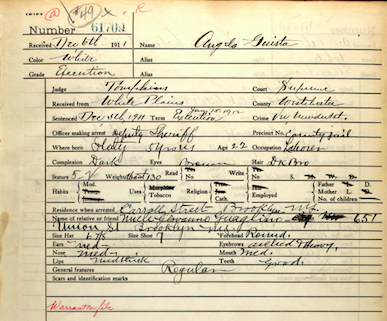 #49 x R
Number 61709
Received Dec 6th 1911 Name Angelo Giusto
Color White Alias
Grade Execution Alias
Judge Tompkins Court Supreme
Received from White Plains County Westchester
Sentenced Dec 5th, 1911 Term Execution Crime
Officer making arrest Deputy Sheriff Precinct No. County Jail
Where born Italy Age 22 Occupation Laborer
Complexion Dark Eyes Brown Hair Dk Bro
Stature 5- Weight 130 Read Yes No S. W. D.
Habits Mod. Temp. Uses Tobacco Religion Cath. Employed Father L. D. Mother L. No. of children
Residence when arrested Carroll Street Brooklyn
Name of relative or friend 651
Union St Brooklyn
Size Hat 6 7/8 Size Shoe 7 Forehead Round.
Ears med- Eyebrows arched & heavy.
Nose med- Mouth Med.
Lips med thick Teeth Good.
General features Regular
Scars and identification marks